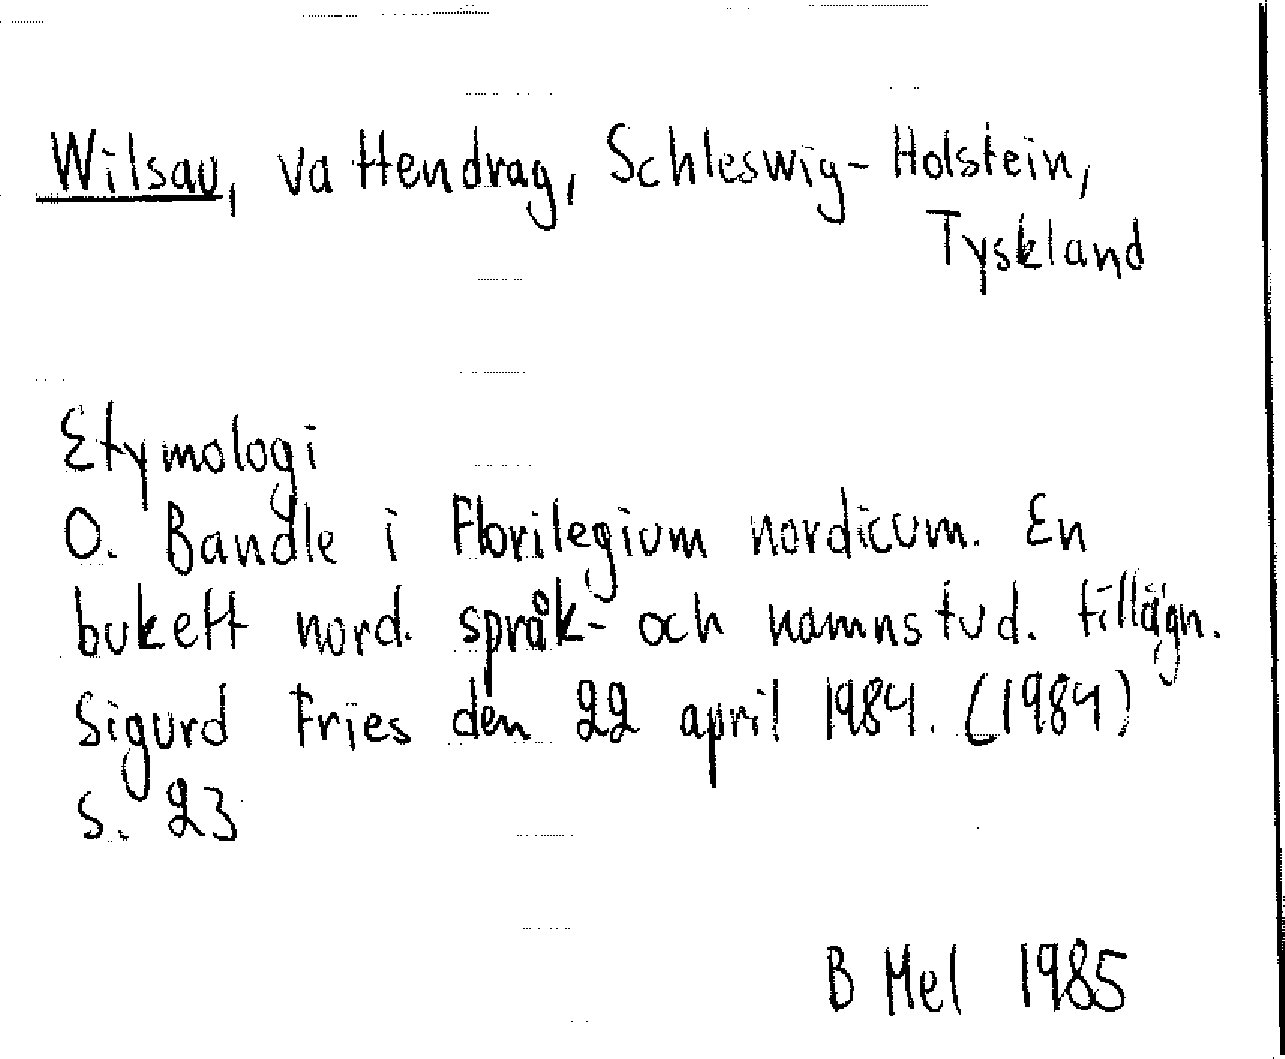 Wilsau, vattendrag, Schleswig-Holstein,
Tyskland
Etymologi
O. Bandle i Florilegium nordicum. En
bukett nord. språk- och namnstud. tillägn.
Sigurd Fries den 22 april 1984. (1984)
s. 23
B Mel 1985